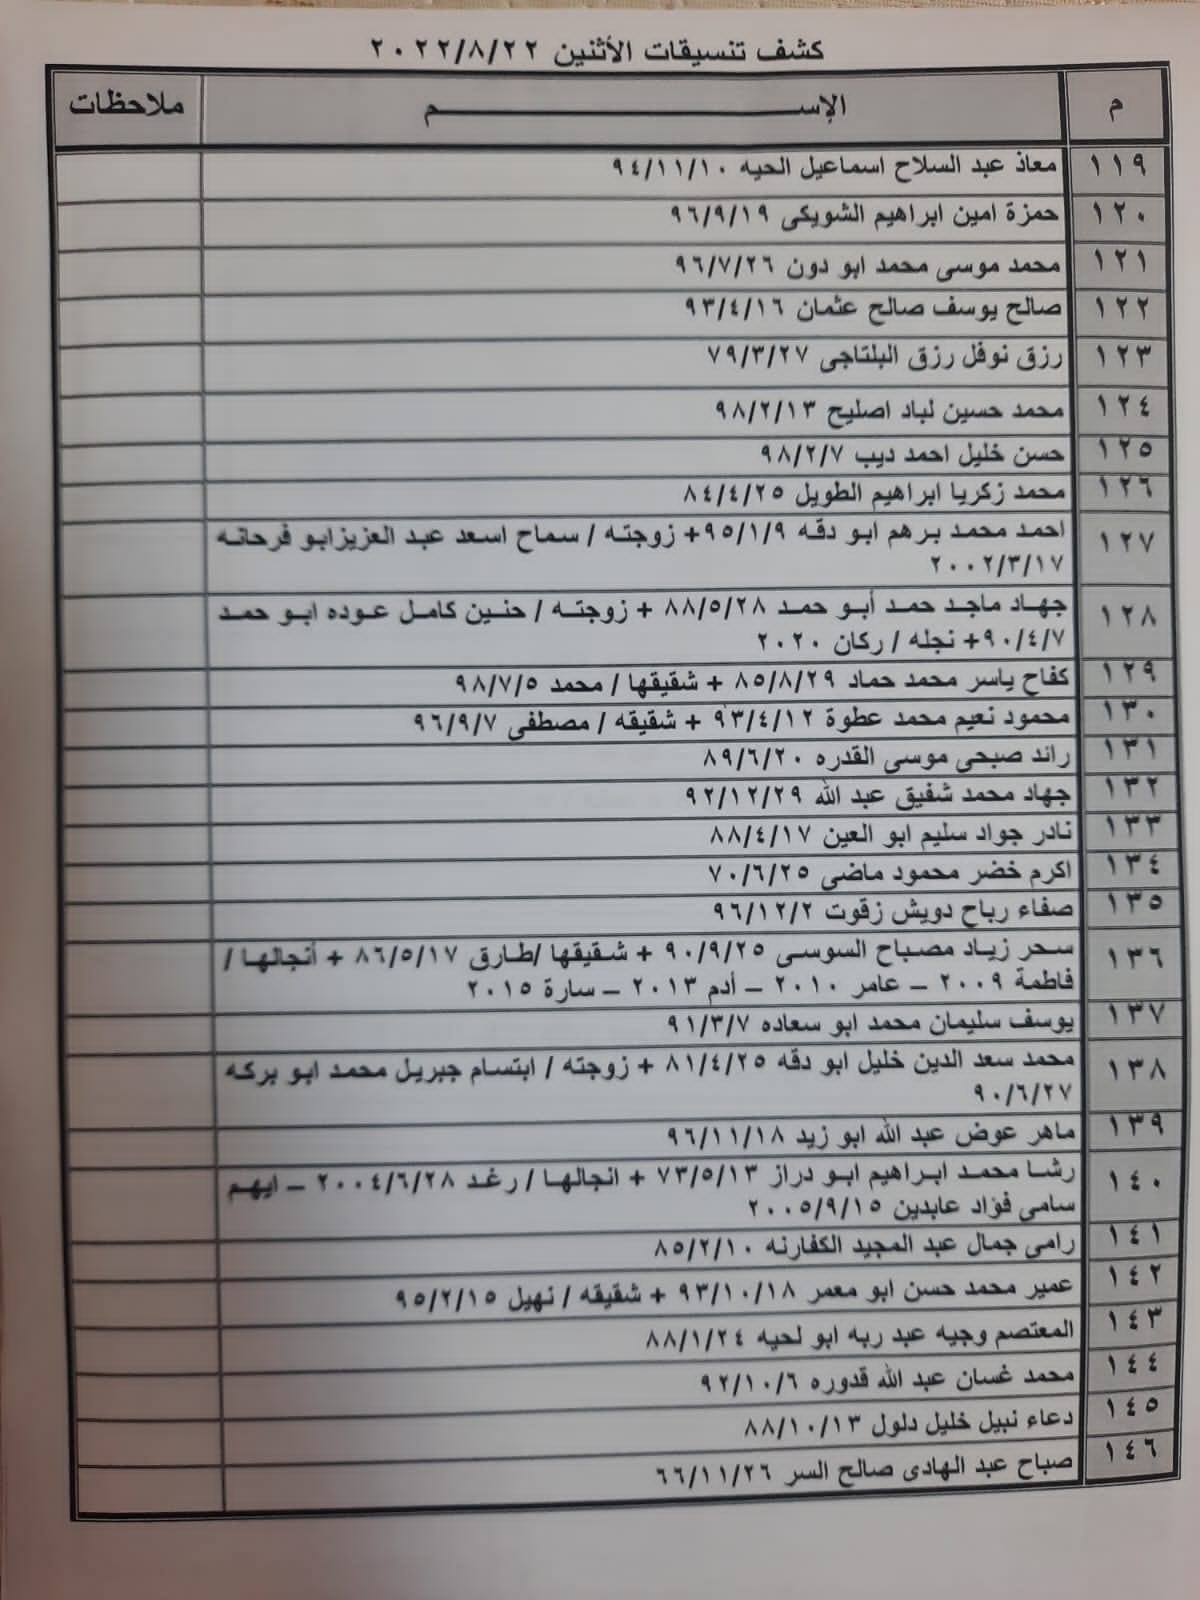 كشف تنسيقات الأثنين ٢٠٢٢/٨/٢٢
م الإســــــــــــم ملاحظات
١١٩ معاذ عبد السلاح اسماعيل الحيه ٩٤/١١/١٠
١٢٠ حمزة امين ابراهيم الشويكى ٩٦/٩/١٩
١٢١ محمد موسى محمد ابو دون ٩٦/٧/٢٦
١٢٢ صالح يوسف صالح عثمان ٩٣/٤/١٦
١٢٣ رزق نوفل رزق البلتاجى ٧٩/٣/٢٧
١٢٤ محمد حسين لباد اصليح ٩٨/٢/١٣
١٢٥ حسن خليل احمد ديب ٩٨/٢/٧
١٢٦ محمد زكريا ابراهيم الطويل ٨٤/٤/٢٥
١٢٧ احمد محمد برهم ابو دقه ٩٥/١/٩+ زوجته / سماح اسعد عبد العزيزابو فرحانه
٢٠٠٢/٣/١٧
١٢٨ جهاد ماجد حمد أبو حمد ٨٨/٥/٢٨ + زوجته / حنين كامل عوده ابو حمد
٩٠/٤/٧+ نجله / ركان ٢٠٢٠
١٢٩ كفاح ياسر محمد حماد ٨٥/٨/٢٩ + شقيقها / محمد ٩٨/٧/٥
١٣٠ محمود نعيم محمد عطوة ٩٣/٤/١٢ + شقيقه / مصطفى ٩٦/٩/٧
١٣١ رائد صبحى موسى القدره ٨٩/٦/٢٠
١٣٢ جهاد محمد شفيق عبد الله ٩٢/١٢/٢٩
١٣٣ نادر جواد سليم ابو العين ٨٨/٤/١٧
١٣٤ اكرم خضر محمود ماضى ٧٠/٦/٢٥
١٣٥ صفاء رباح دويش زقوت ٩٦/١٢/٢
١٣٦ سحر زياد مصباح السوسى ٩٠/٩/٢٥ + شقيقها /طارق ٨٦/٥/١٧ + أنجالها /
فاطمة ٢٠٠٩ – عامر ٢٠١٠ – أدم ٢٠١٣ – سارة ٢٠١٥
١٣٧ يوسف سليمان محمد ابو سعاده ٩١/٣/٧
١٣٨ محمد سعد الدين خليل ابو دقه ٨١/٤/٢٥ + زوجته / ابتسام جبريل محمد ابو بركه
٩٠/٦/٢٧
١٣٩ ماهر عوض عبد الله ابو زيد ٩٦/١١/١٨
١٤٠ رشا محمد ابراهيم ابو دراز ٧٣/٥/١٣ + انجالها / رغد ٢٠٠٤/٦/٢٨ – ايهم
سامى فؤاد عابدين ٢٠٠٥/٩/١٥
١٤١ رامى جمال عبد المجيد الكفارنه ٨٥/٢/١٠
١٤٢ عمير محمد حسن ابو معمر ٩٣/١٠/١٨ + شقيقه / نهيل ٩٥/٢/١٥
١٤٣ المعتصم وجيه عبد ربه ابو لحيه ٨٨/١/٢٤
١٤٤ محمد غسان عبد الله قدوره ٩٢/١٠/٦
١٤٥ دعاء نبيل خليل دلول ٨٨/١٠/١٣
١٤٦ صباح عبد الهادى صالح السر ٦٦/١١/٢٦